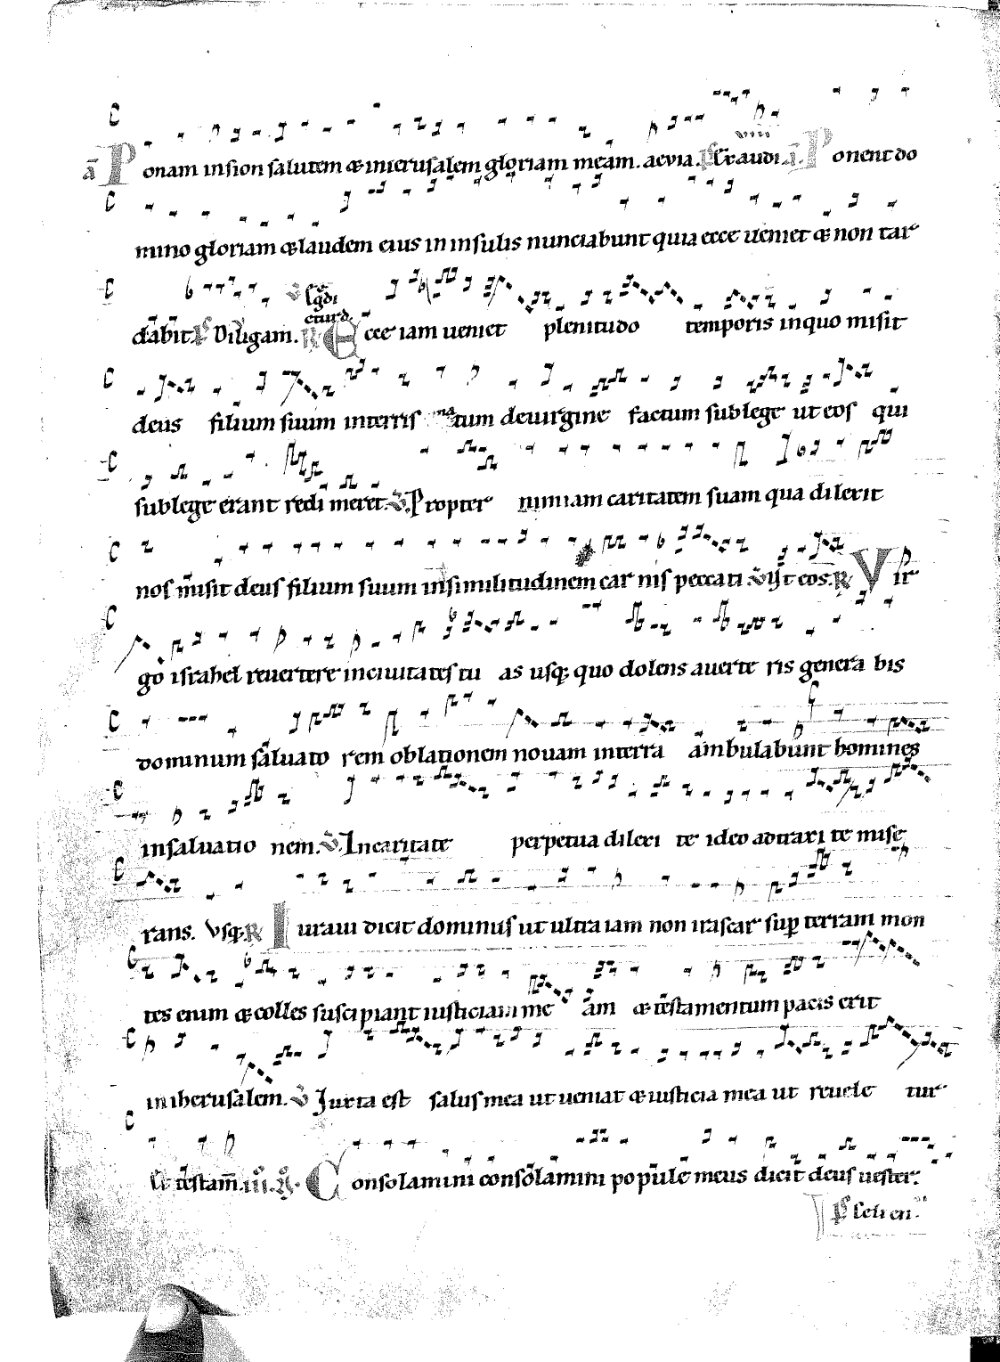 ā Ponam insion salutem & inierusalem gloriam meam. aevia. ps Exaudi. ā. Ponent do
mino gloriam & laudem eius in insulis nunciabunt quia ecce ueniet & non tar
dabit. ps Diligam. R Ecce iam ueniet plenitudo temporis inquo misit
deus filium suum interris natum deuirgine factum sublege ut eos qui
sublege erant redimeret. V Propter nimiam caritatem suam qua dilexit
nos misit deus filium suum insimilitudinem carnis peccati. V ut eos. R Vir
go israhel reuertere inciuitates tuas usq; quo dolens auerteris generabis
dominum saluatorem oblationem nouam interra ambulabunt homines
insaluationem. V Incaritate perpetua dilexi te ideo adtraxi te mise
rans. Vsq; R Iuraui dicit dominus ut ultra iam non irascar sup terram mon
tes enim & colles suscipiant iusticiam meam & testamentum pacis erit
iniherusalem. V Juxta est salus mea ut ueniat & iusticia mea ut reueletur
Et testam. Consolamini consolamini popule meus dicit deus uester.